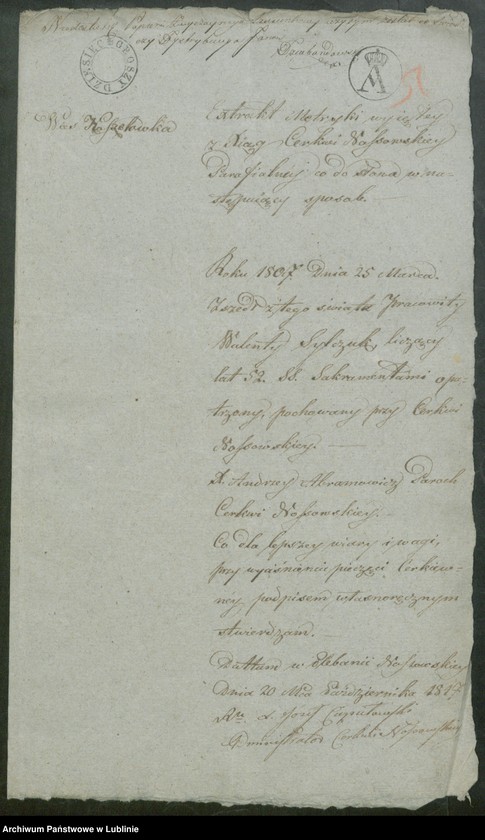 DZIESIĘĆ GROSZY
Wieś Koszełowka
Extrakt Metryki wyjętey
z Xiąg Cerkwi Nossowskiey
Parafialney co do słowa w na-
stępuiący sposob.
Roku 1807 Dnia 25 Marca.
Zszedł z tego świata Pracowity
Walenty Sylczuk, liczący
lat 52. SS. Sakramentami opa-
trzony, pochowany przy Cerkwi
Nossowskiey.
X. Andrzey Abramowicz Paroch
Cerkwi Nossowskiey.
Co dla lepszey wiary i wagi,
przy wyciśnieniu pieczęci Cerkiew-
ney podpisem własnoręcznym
stwierdzam.
Dattum w Plebanii Nossowskiey
Dnia 20 Mca Października 1817
Administrator Cerkwi Nossowskiey
Archiwum Państwowe w Lublinie